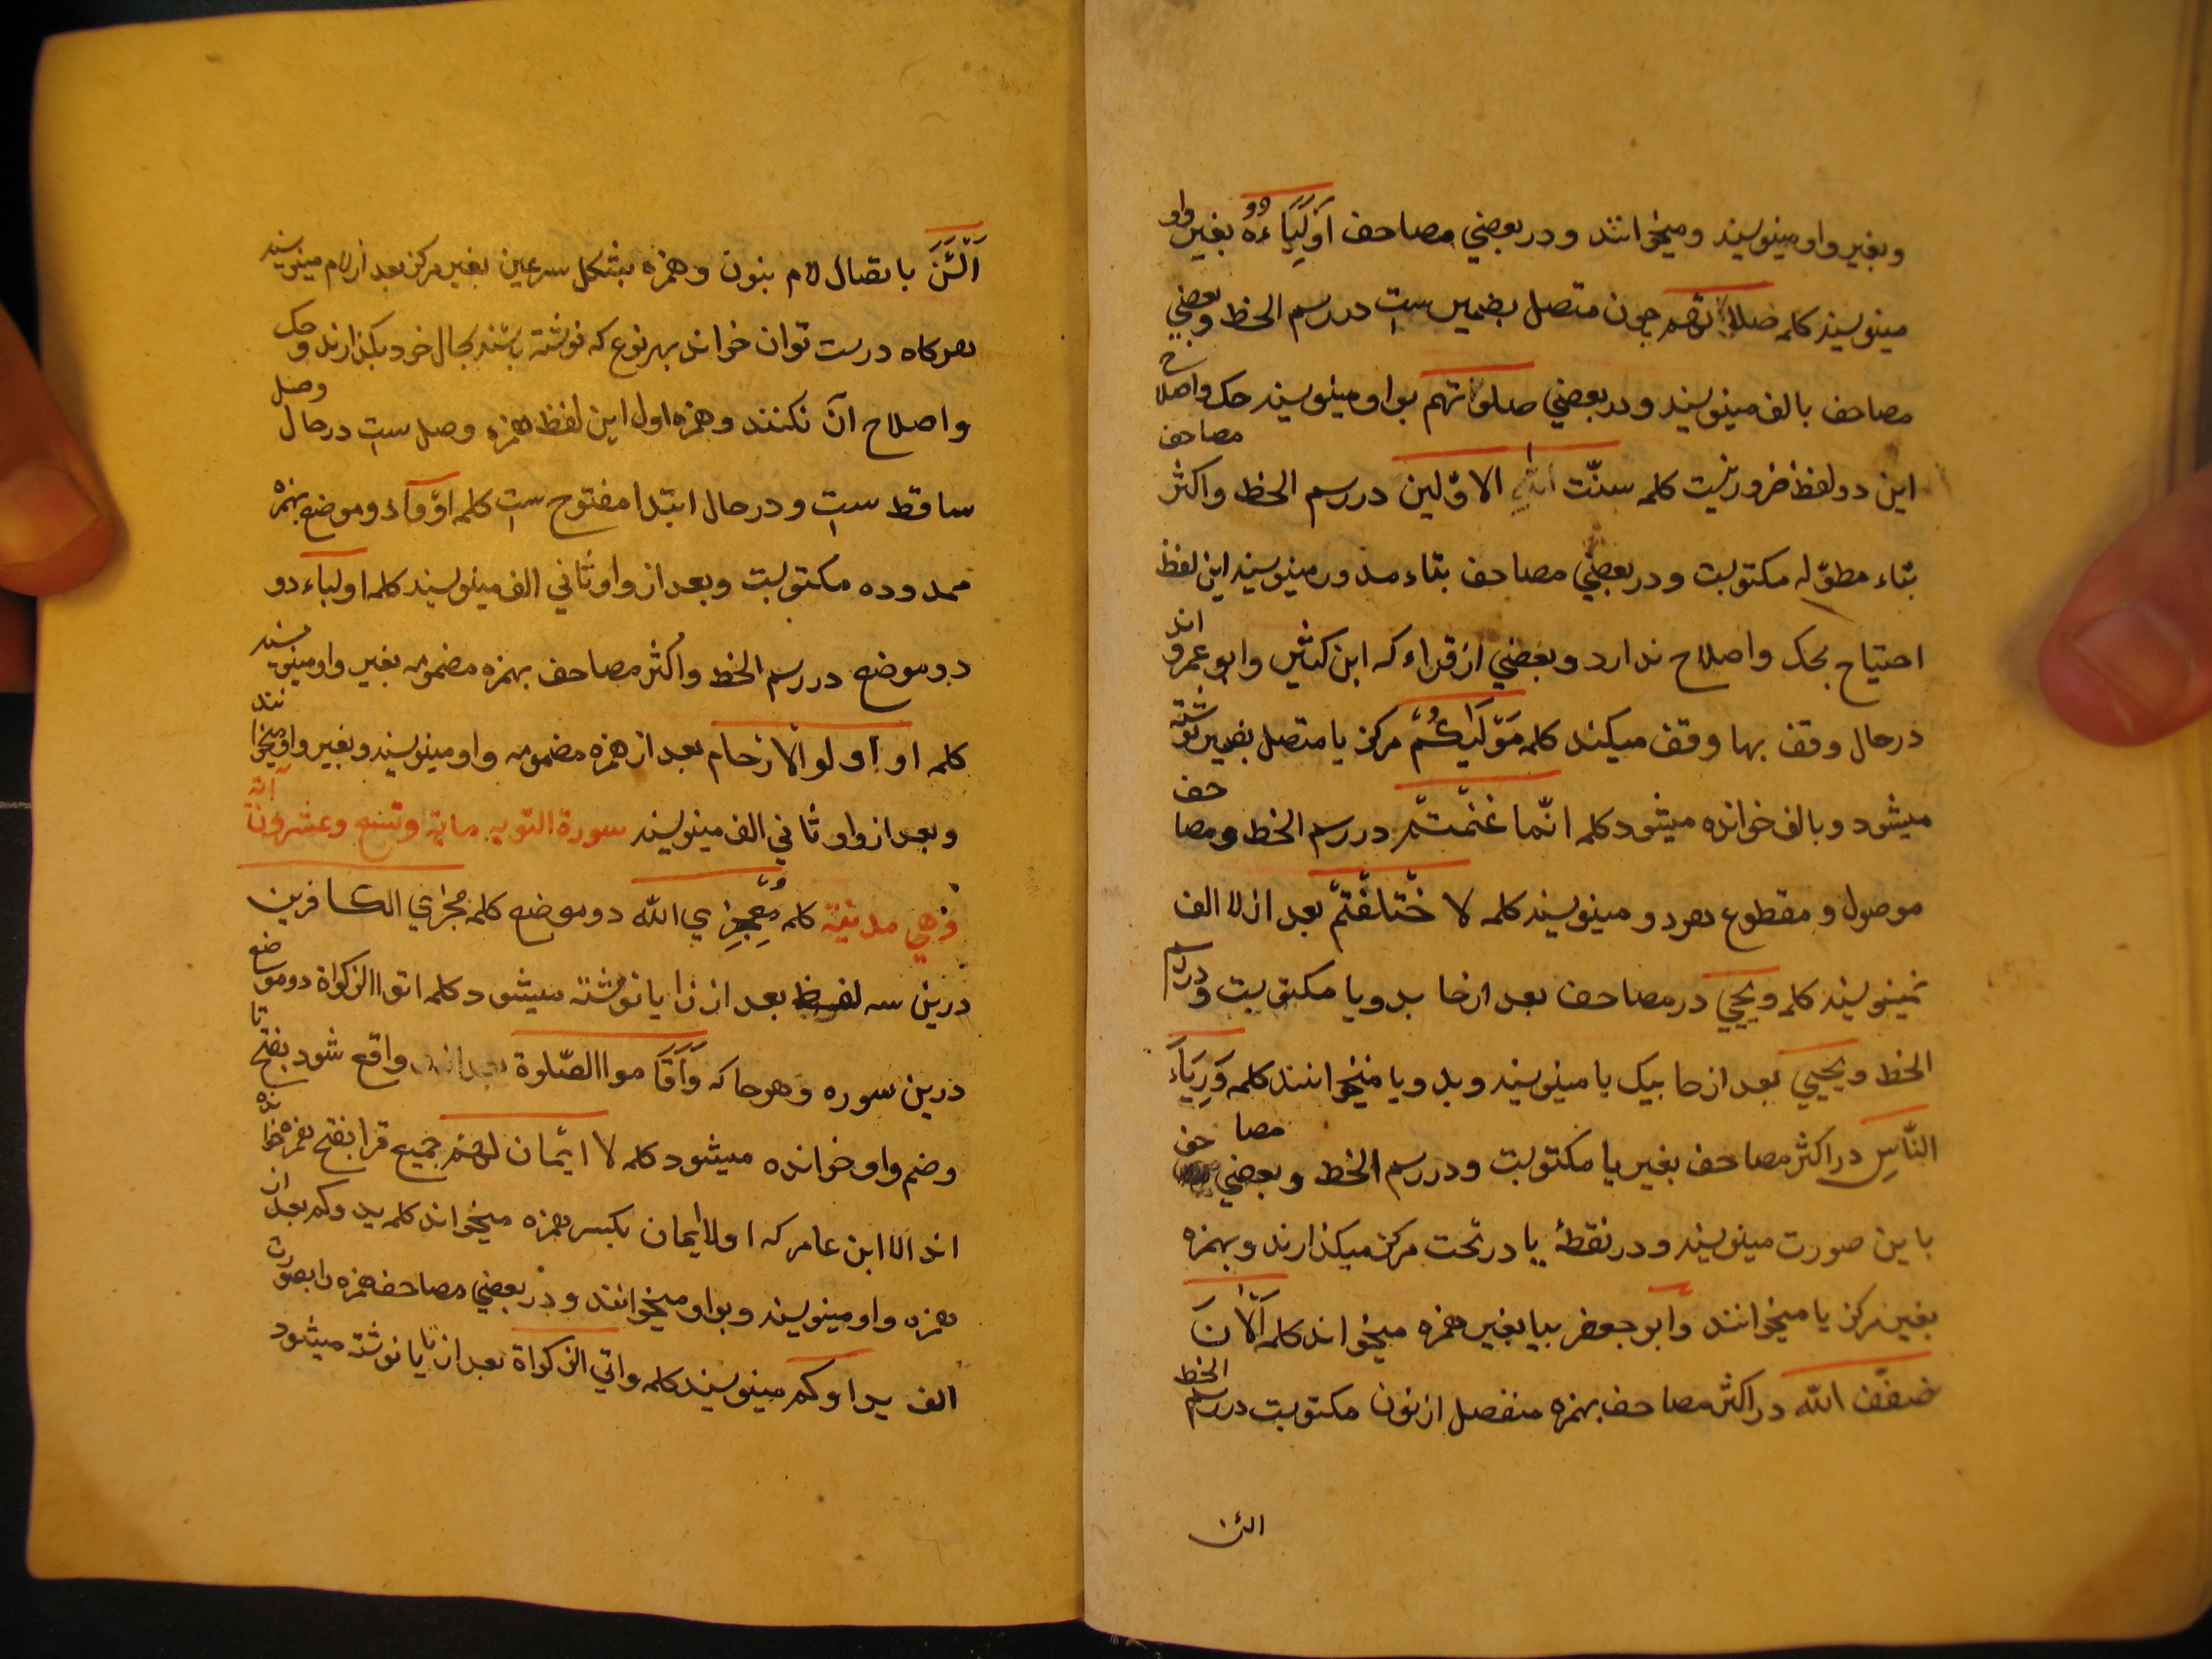 وبغیر واو مینویسند ومیخوانند ودر بعضي مصاحف أَوْلِيَاءُهُ بغیر واو
مینویسند کلمه صلاتهم چون متصل بضمیرست در رسم الخط وبعضي
مصاحف بالف مینویسند ودر بعضي صلواتهم بواو مینویسند حک واصلاح
این دو لفظ ضرور نیست کلمه سنّت الاوّلین در رسم الخط واکثر مصاحف
بتاء مطوّله مکتوبست ودر بعضي مصاحف بتاء مدور مینویسند این لفظ
احتیاج بحک واصلاح ندارد وبعضي از قراء که ابن کثیر وابو عمرو اند
در حال وقف بها وقف میکند کلمه مَوْلَيٰكُمْ مرکز یا متصل بضمیر نوشته
میشود وبالف خوانده میشود کلمه انّما غَنِمْتُمْ در رسم الخط ومصاحف
موصول ومقطوع هر دو مینویسند کلمه لا خْتَلَفْتُمْ بعد از لا الف
نمینویسند کلمه ویحیي در مصاحف بعد از حا بدو یا مکتوبست ودر رسم
الخط ویحیي بعد از حا بیک یا مینویسند وبدو یا میخوانند کلمه وَرِيَآءَ
النّاسِ در اکثر مصاحف بغیر یا مکتوبست ودر رسم الخط وبعضي مصاحف
باین صورت مینویسند ودر نقطهٔ یا در تحت مرکز میکذارند وبهمزه
بغیر مرکز یا میخوانند وابو جعفر بیا بغیر همزه میخواند کلمه اَلْآنَ
خفّف الله در اکثر مصاحف بهمزه منفصل از نون مکتوبست در رسم الخط
الئن
اَلْئٰنَ باتصال لام بنون وهمزه بشکل سر عین بغیر مرکز بعد از لام مینویسند
هر کاه درست توان خواند بهر نوع که نوشته باشند بحال خود بکذارند وحک
واصلاح آن نکنند وهمزه اول این لفظ همزه وصل ست در حال وصل
ساقط ست ودر حال ابتدا مفتوح ست کلمه اوَوا دو موضع بهمزه
ممدوده مکتوبست وبعد از واو ثاني الف مینویسند کلمه اولیاء دو
دو موضع در رسم الخط واکثر مصاحف بهمزه مضمومه بغیر واو مینویسند
کلمه او اولوا الارحام بعد از همزه مضمومه واو مینویسند وبغیر واو میخوانند
وبعد از واو ثاني الف مینویسند سورة التوبه مایة وتسع وعشرون آیة
وهي مدنیّة کلمه مُعْجِزِي الله دو موضع کلمه مخزي الکافرین
درین سه لفظ بعد از زا یا نوشته میشود کلمه اتوا الزکواة دو موضع
درین سوره وهر جا که وَأَقَامُوا الصّلوة واقع شود بفتح تا
وضم واو خوانده میشود کلمه لا ایمان لهم جمیع قرا بفتح همزه خوانده
اند الا ابن عامر که او لا ایمان بکسر همزه میخواند کلمه یدوکم بعد از
همزه واو مینویسند وبواو میخوانند ودر بعضي مصاحف همزه را بصورت
الف یداوکم مینویسند کلمه واتي الزکواة بعد از تا یا نوشته میشود